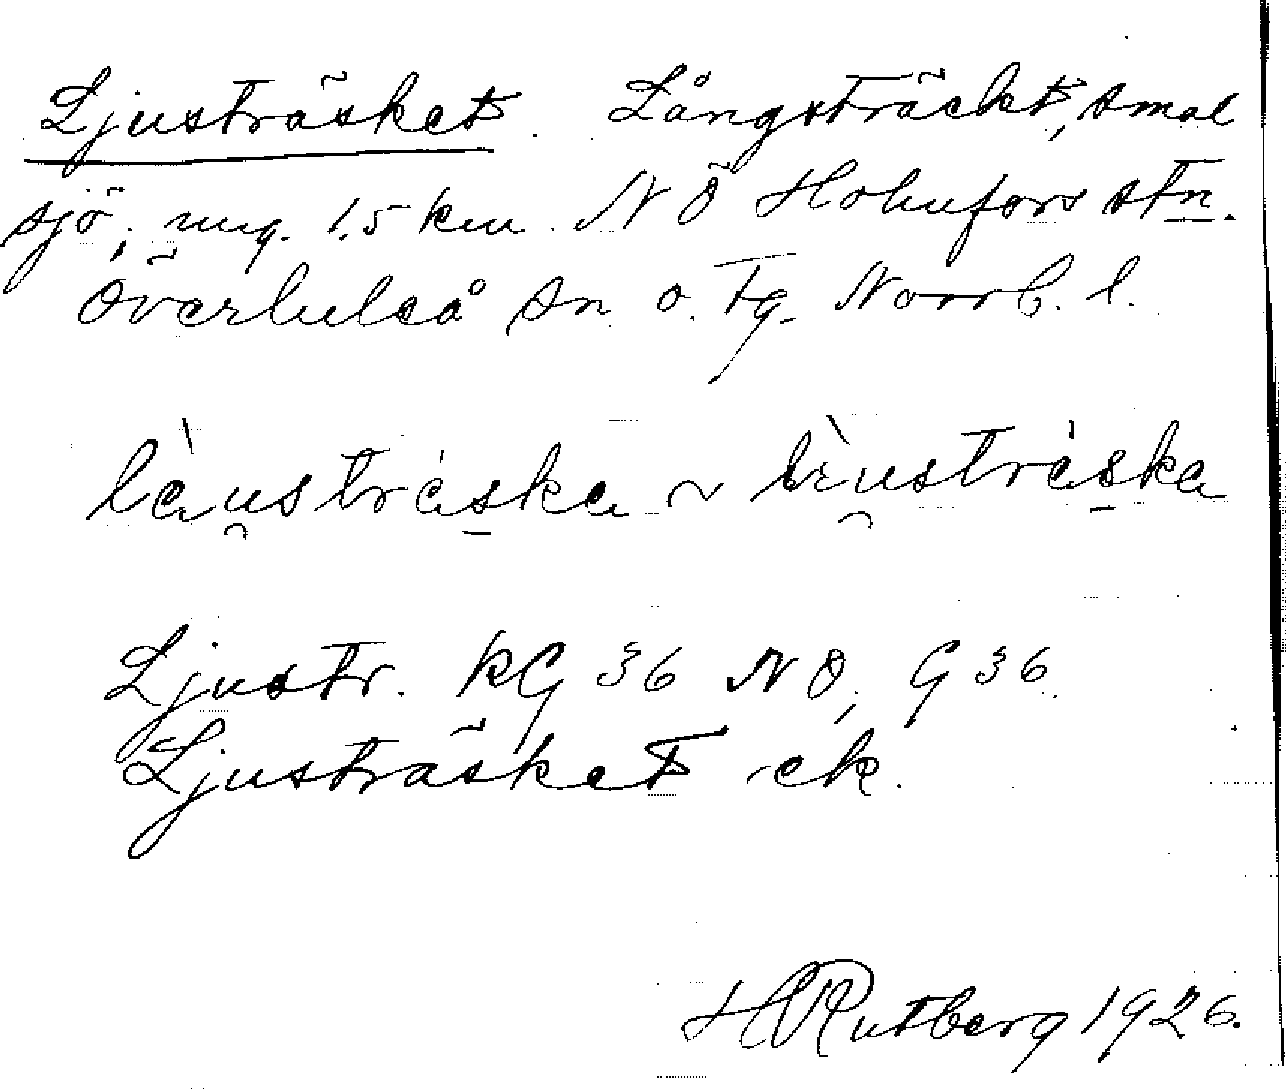 Ljusträsket. Långsträckt, smal
sjö, ung. 1.5 km NÖ Holmfors stn.
Överluleå sn o. tg. Norrb. l.
làu̯strás̱ka ~ lìu̯strás̱ka
Ljustr. KG 36 NO, G 36
Ljusträsket ek.
HVRutberg 1926.